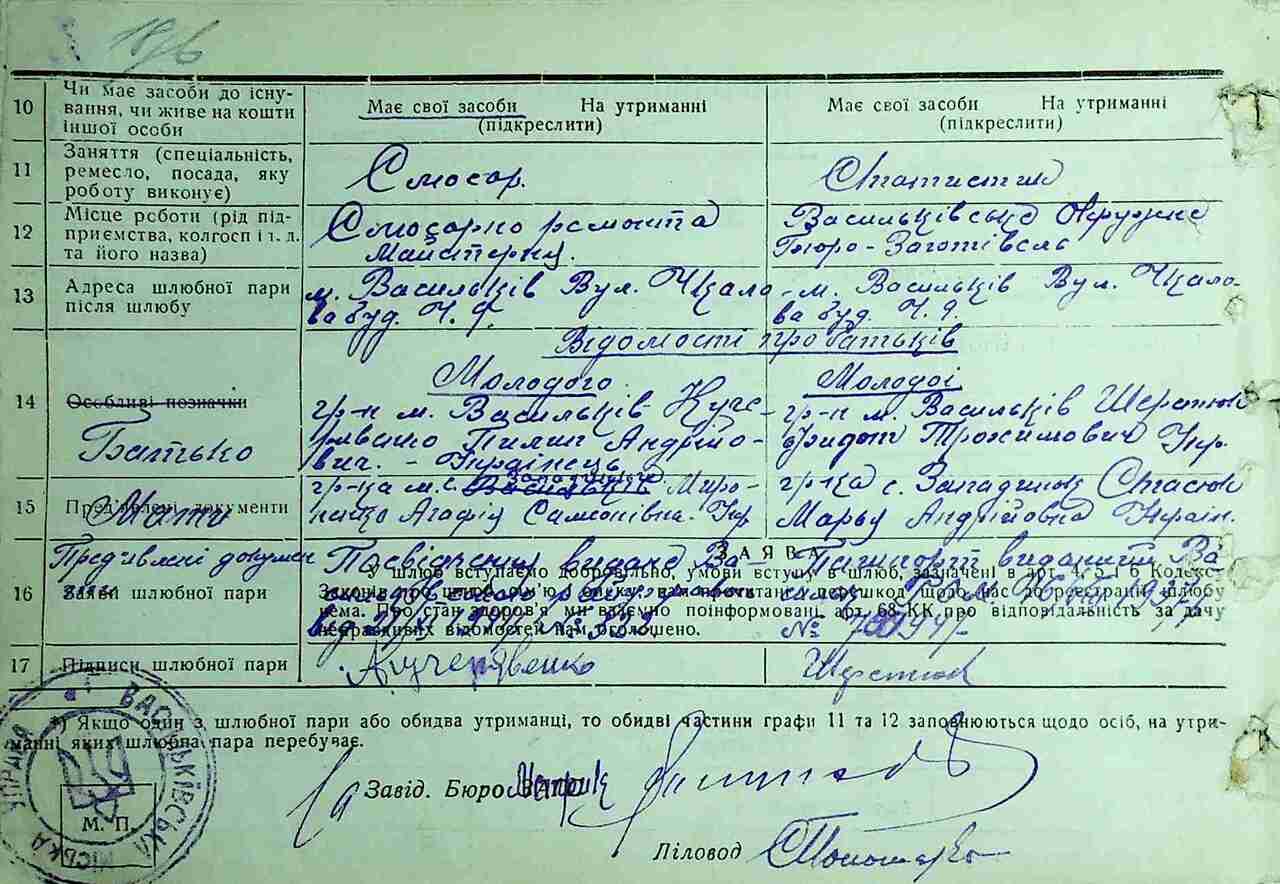 18/б
10 Чи має засоби до існу-
вання, чи живе на кошти
іншої особи
Має свої засоби На утриманні
(підкреслити)
Має свої засоби На утриманні
(підкреслити)
11 Заняття (спеціальність,
ремесло, посада, яку
роботу виконує)
Слюсар.
Статистик
12 Місце роботи (рід під-
приємства, колгосп і т. д.
та його назва)
Слюсарно ремонта
Майстерня.
Васильківське Окружне
Бюро-Заготівель
13 Адреса шлюбної пари
після шлюбу
м. Васильків Вул. Чкало-
ва буд. Ч. 9.
м. Васильків Вул. Чкало-
ва буд. Ч. 9.
Відомості про батьків
Молодого
Молодоі
14 Особливі позначки
Батько
гр-н м. Васильків Куче-
рявенко Пилип Андрійо-
вич. - Українець
гр-н м. Васильків Шерстюк
Трохимович Укр.
15 Пред'явлені документи
Мати
гр-ка с. Васильків Миро-
Агафія Самонівна. Укр
гр-ка с. Западинок Стасюк
Марья Андрійовна Україн.
Предявлені докумен
ЗАЯВА
16 Заяви шлюбної пари
У шлюб вступаємо добровільно, умови вступу в шлюб, зазначені в арт. 4, 5 і 6 Кодексу
Законів про родину, опіку, нам прочитані, перешкод щодо нас до реєстрації шлюбу
нема. Про стан здоров'я ми взаємно поінформовані, арт. 68 КК про відповідальність за дачу
неправдивих відомостей нам оголошено.
Посвідчення видане Ва-
Пашпорт виданий Ва-
17 Підписи шлюбної пари
Кучерявенко
Шерстюк
*) Якщо один з шлюбної пари або обидва утриманці, то обидві частини графи 11 та 12 заповнюються щодо осіб, на утри-
манні яких шлюбна пара перебуває.
За Завід. Бюро
М. П.
ВАСИЛЬКІВСЬКА МІСЬКА УПРАВА
Діловод Пономарко